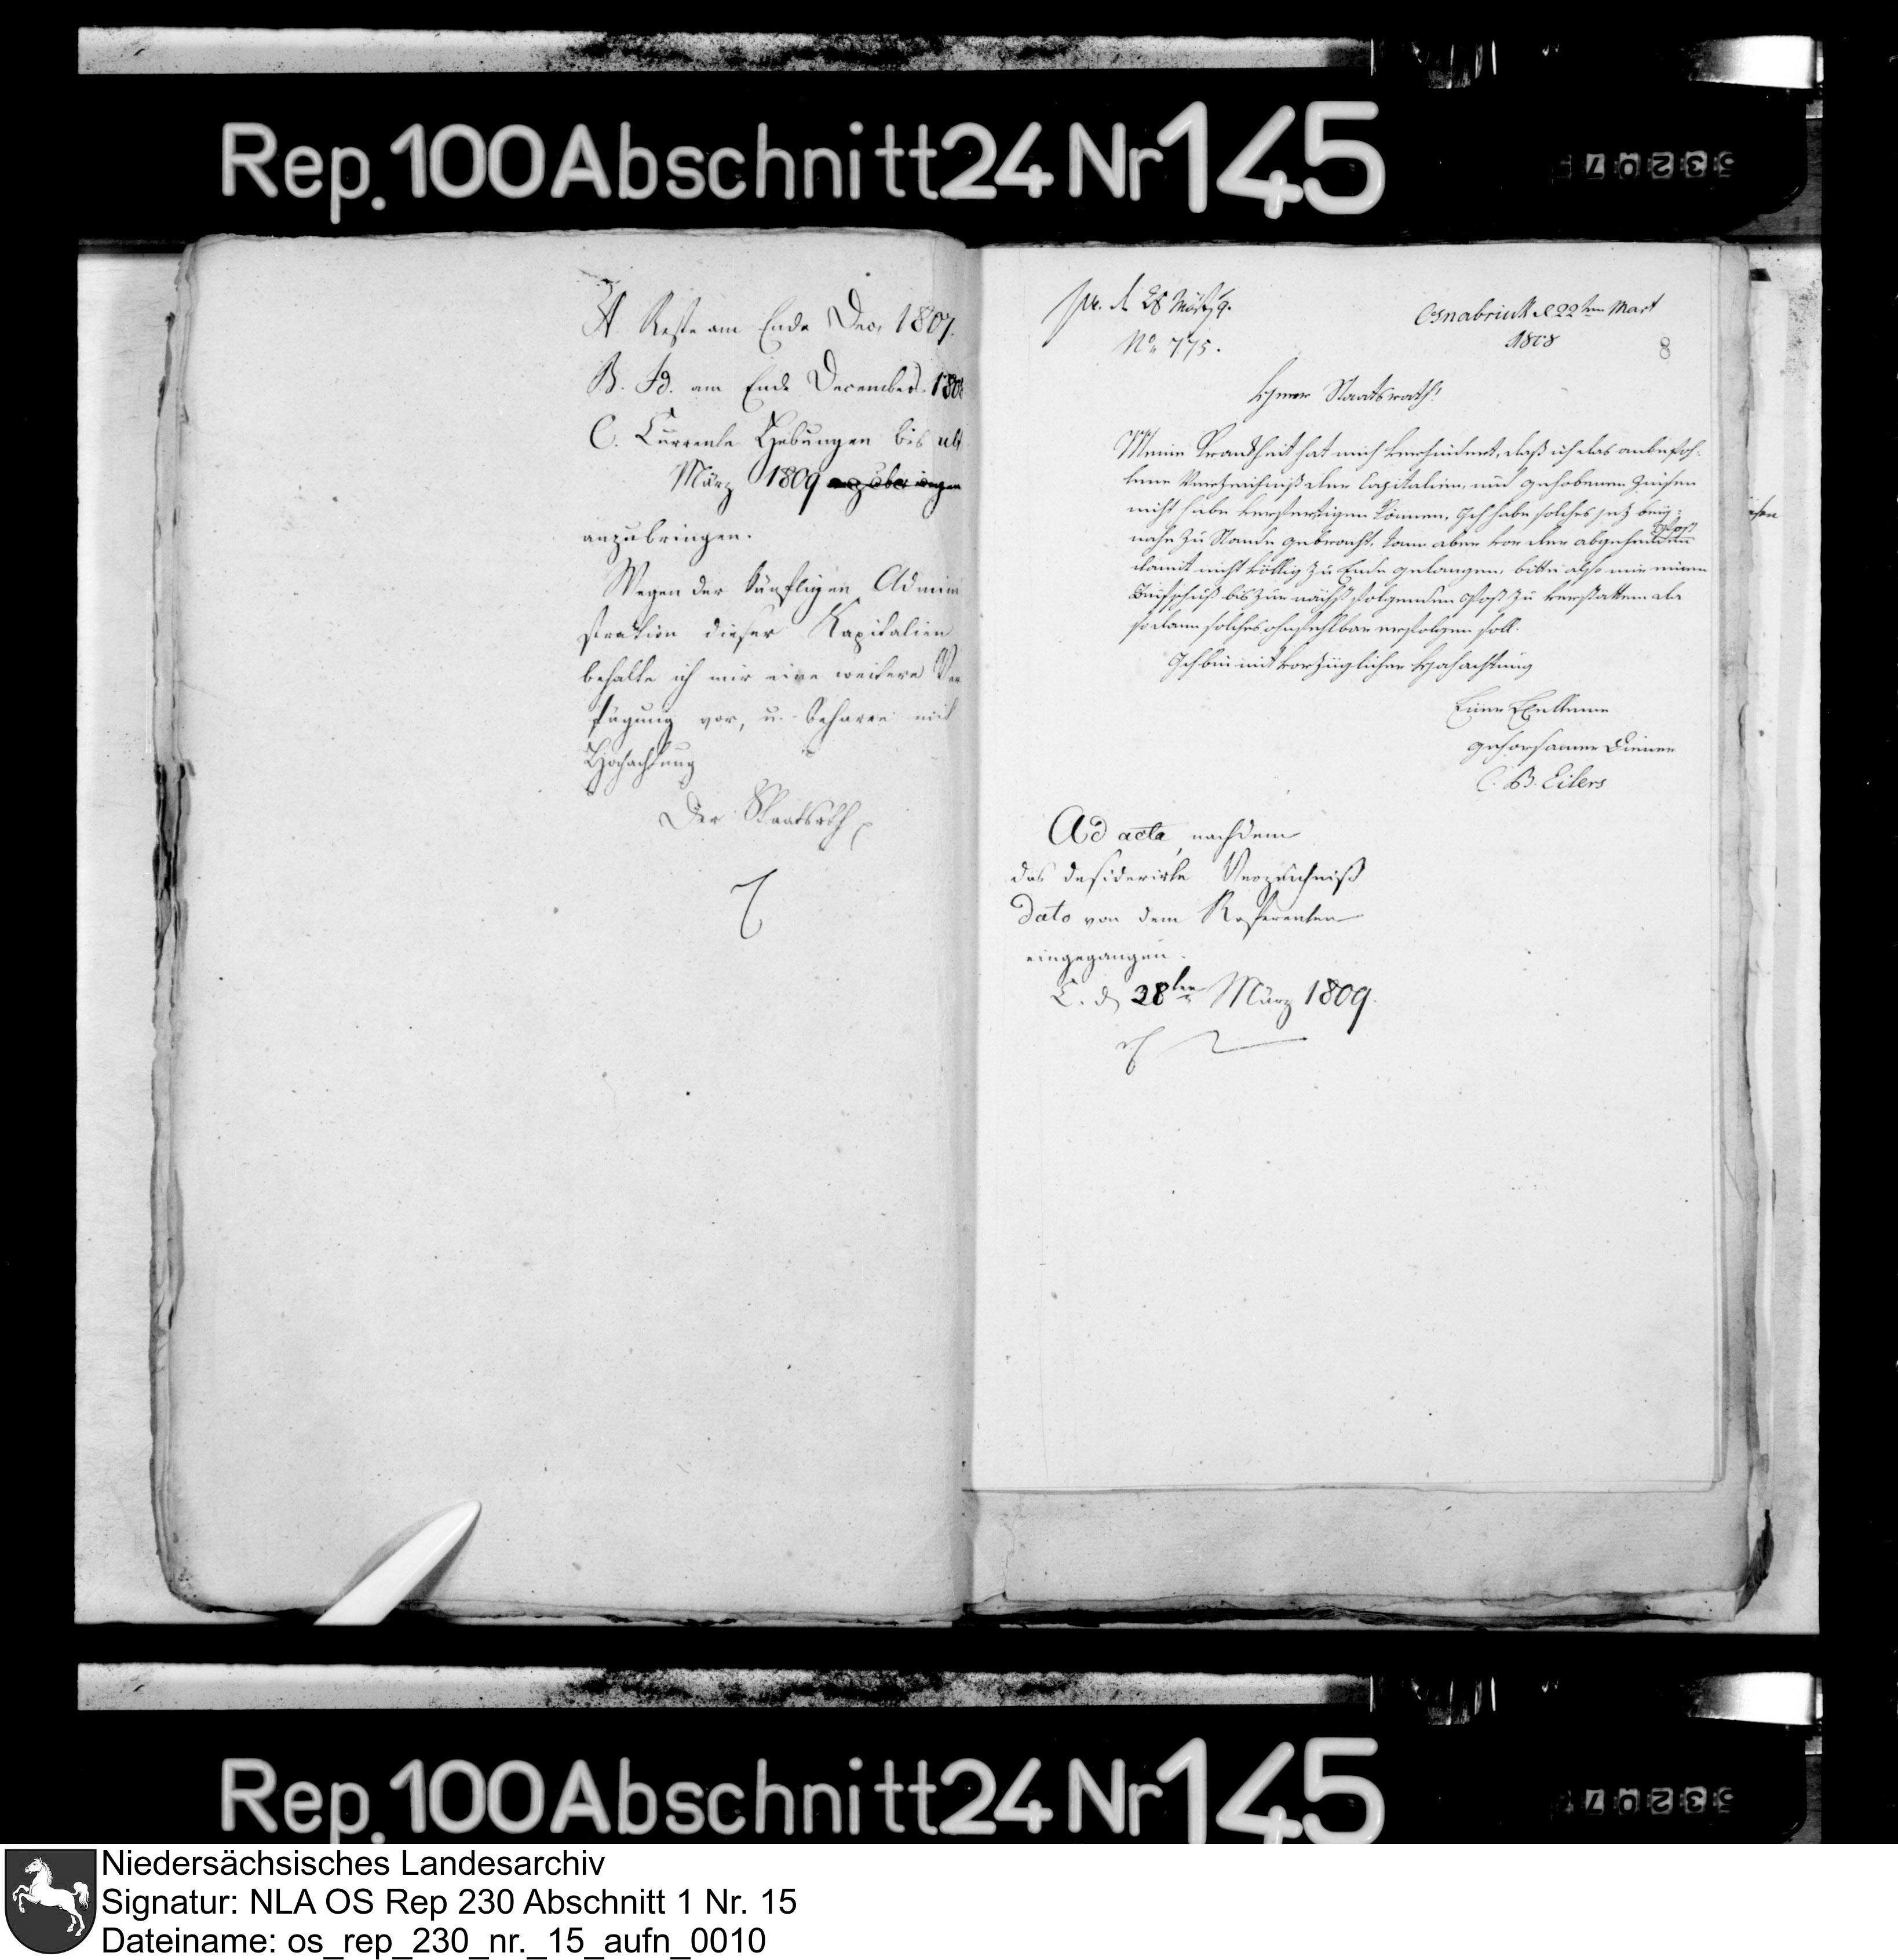 Rep. 100 Abschnitt 24 Nr 145
53207
A. Reste am Ende Dec. 1807.
B. Id. am Ende December 180
C. Currente Hebungen bis ult
März 1809
anzubringen.
Wegen der künftigen Admini
stration dieser Kapitalien
behalte ich mir eine weitere Ver
fügung vor, u. beharre mit
Hochachtung
Der Staatsrath
pr. d 28 März 9.
No. 775.
Osnabrück d 22ten Mart
1808
8
Herr Staatsrath!
Meine Krankheit hat mich verhindert, daß ich das anbefoh-
lene Verzeichniß der Capitalien, und gehobenen Zinsen
nicht habe verfertigen können. Ich habe solches jez bei
nahe zu Stande gebracht, kann aber vor der abgehenden Post
damit nicht völlig zu Ende gelangen, bitte also mir einen
bis zur nächst folgenden Post zu verstatten da
sodann solches ohnfehlbar erfolgen soll.
Ich bin mit vorzüglicher Hochachtung
Euer Exellence
gehorsamer Diener
C. B. Eilers
Ad acta, nachdem
das desiderirte Verzeichniß
dato von dem Referenten
eingegangen.
d 28ten März 1809.
Rep. 100 Abschnitt 24 Nr 145
53207
Niedersächsisches Landesarchiv
Signatur: NLA OS Rep 230 Abschnitt 1 Nr. 15
Dateiname: os_rep_230_nr._15_aufn_0010